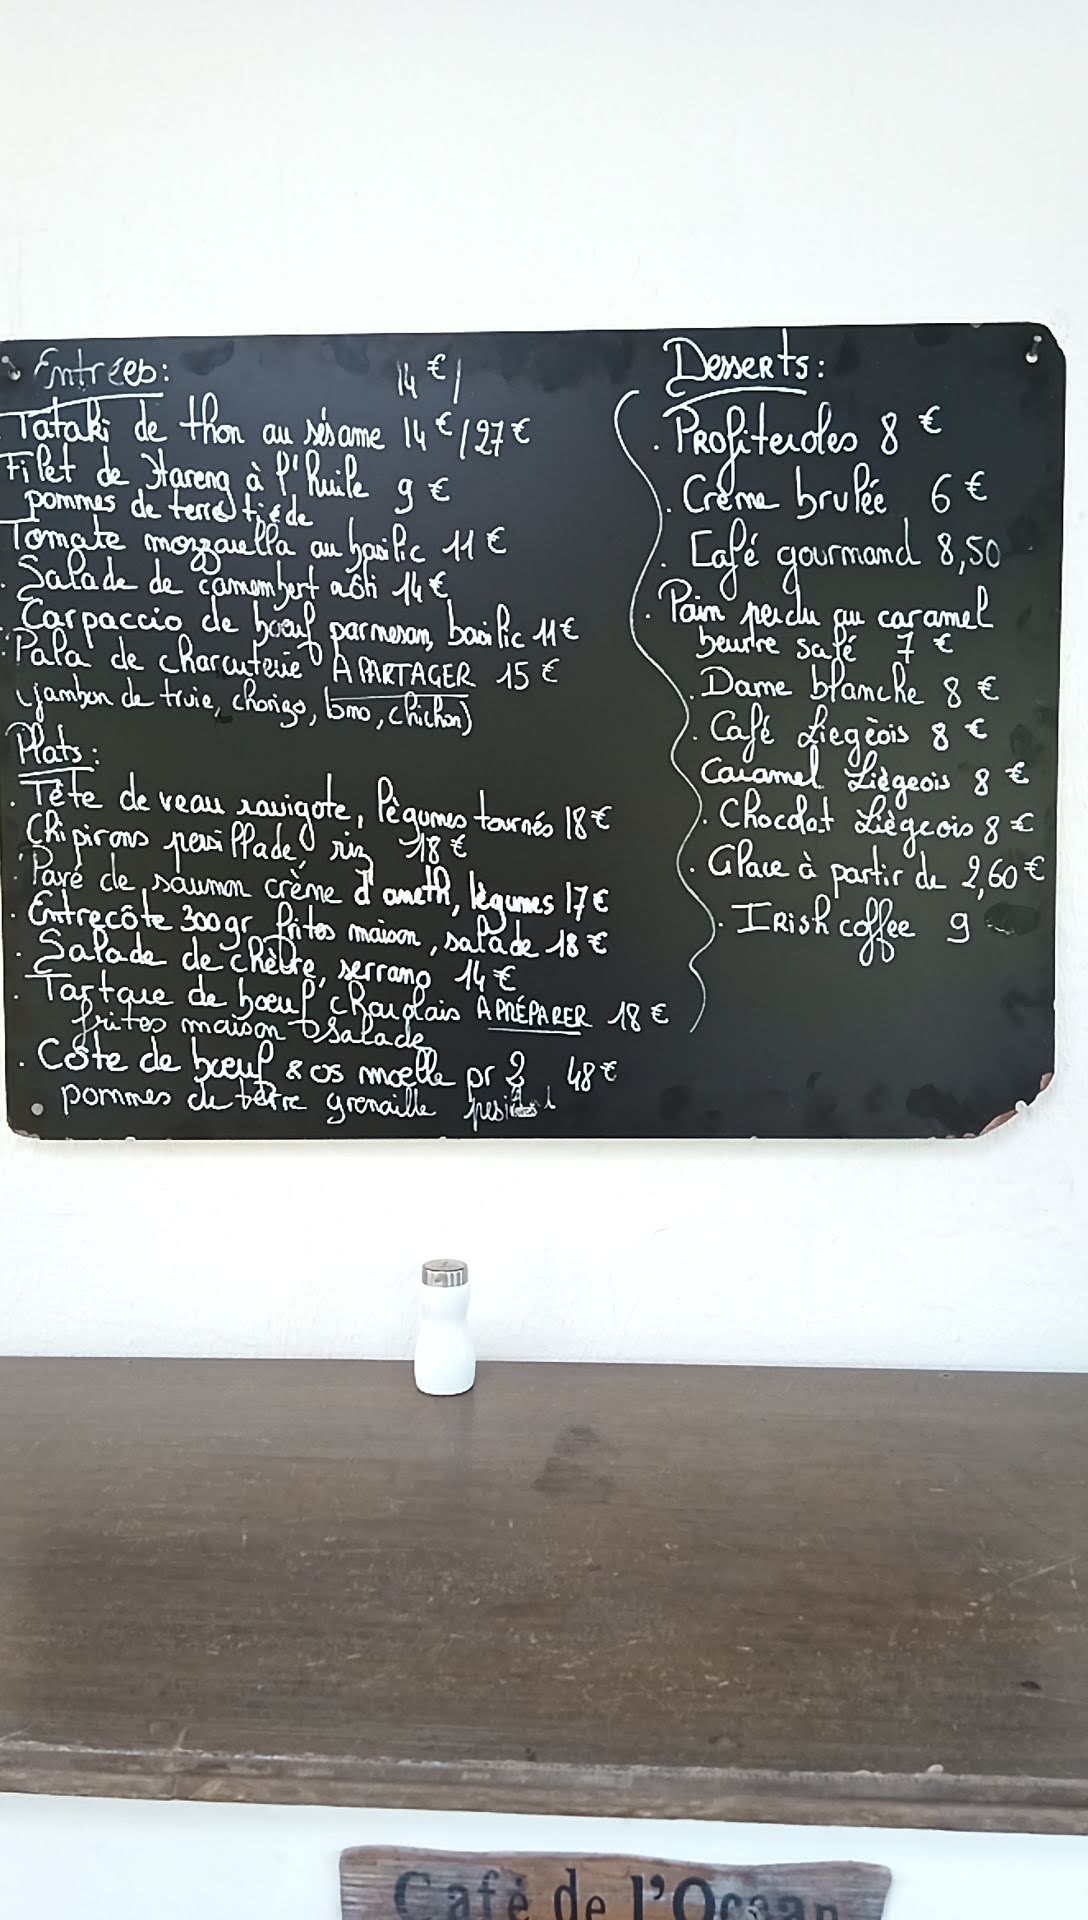 Entrées:
14 € /
Tataki de thon au sésame 14 € / 27 €
Filet de Hareng à l'huile 9 €
pommes de terre tiède
Tomate mozzarella au basilic 11 €
. Salade de camembert rôti 14 €
. Carpaccio de bœuf parmesan, basilic 11 €
. Pala de charcuterie A PARTAGER 15 €
(jambon de truie, chorizo, lomo, chichon)
Plats :
. Tête de veau ravigote, légumes tournés 18 €
Chipirons persillade, riz 18 €
. Pavé de saumon crème d'aneth, légumes 17 €
. Entrecôte 300gr frites maison, salade 18 €
. Salade de chèvre, serrano 14 €
. Tartare de bœuf charolais A PRÉPARER 18 €
frites maison salade
. Côte de bœuf & os moelle pr 2 48 €
pommes de terre grenaille
Desserts :
. Profiteroles 8 €
. Crème brulée 6 €
. Café gourmand 8,50
. Pain perdu au caramel
beurre salé 7 €
. Dame blanche 8 €
. Café Liegèois 8 €
Caramel Liègeois 8 €
. Chocolat Liègeois 8 €
. Glace à partir de 2,60 €
. IRish coffee 9
Café de l'Ocean